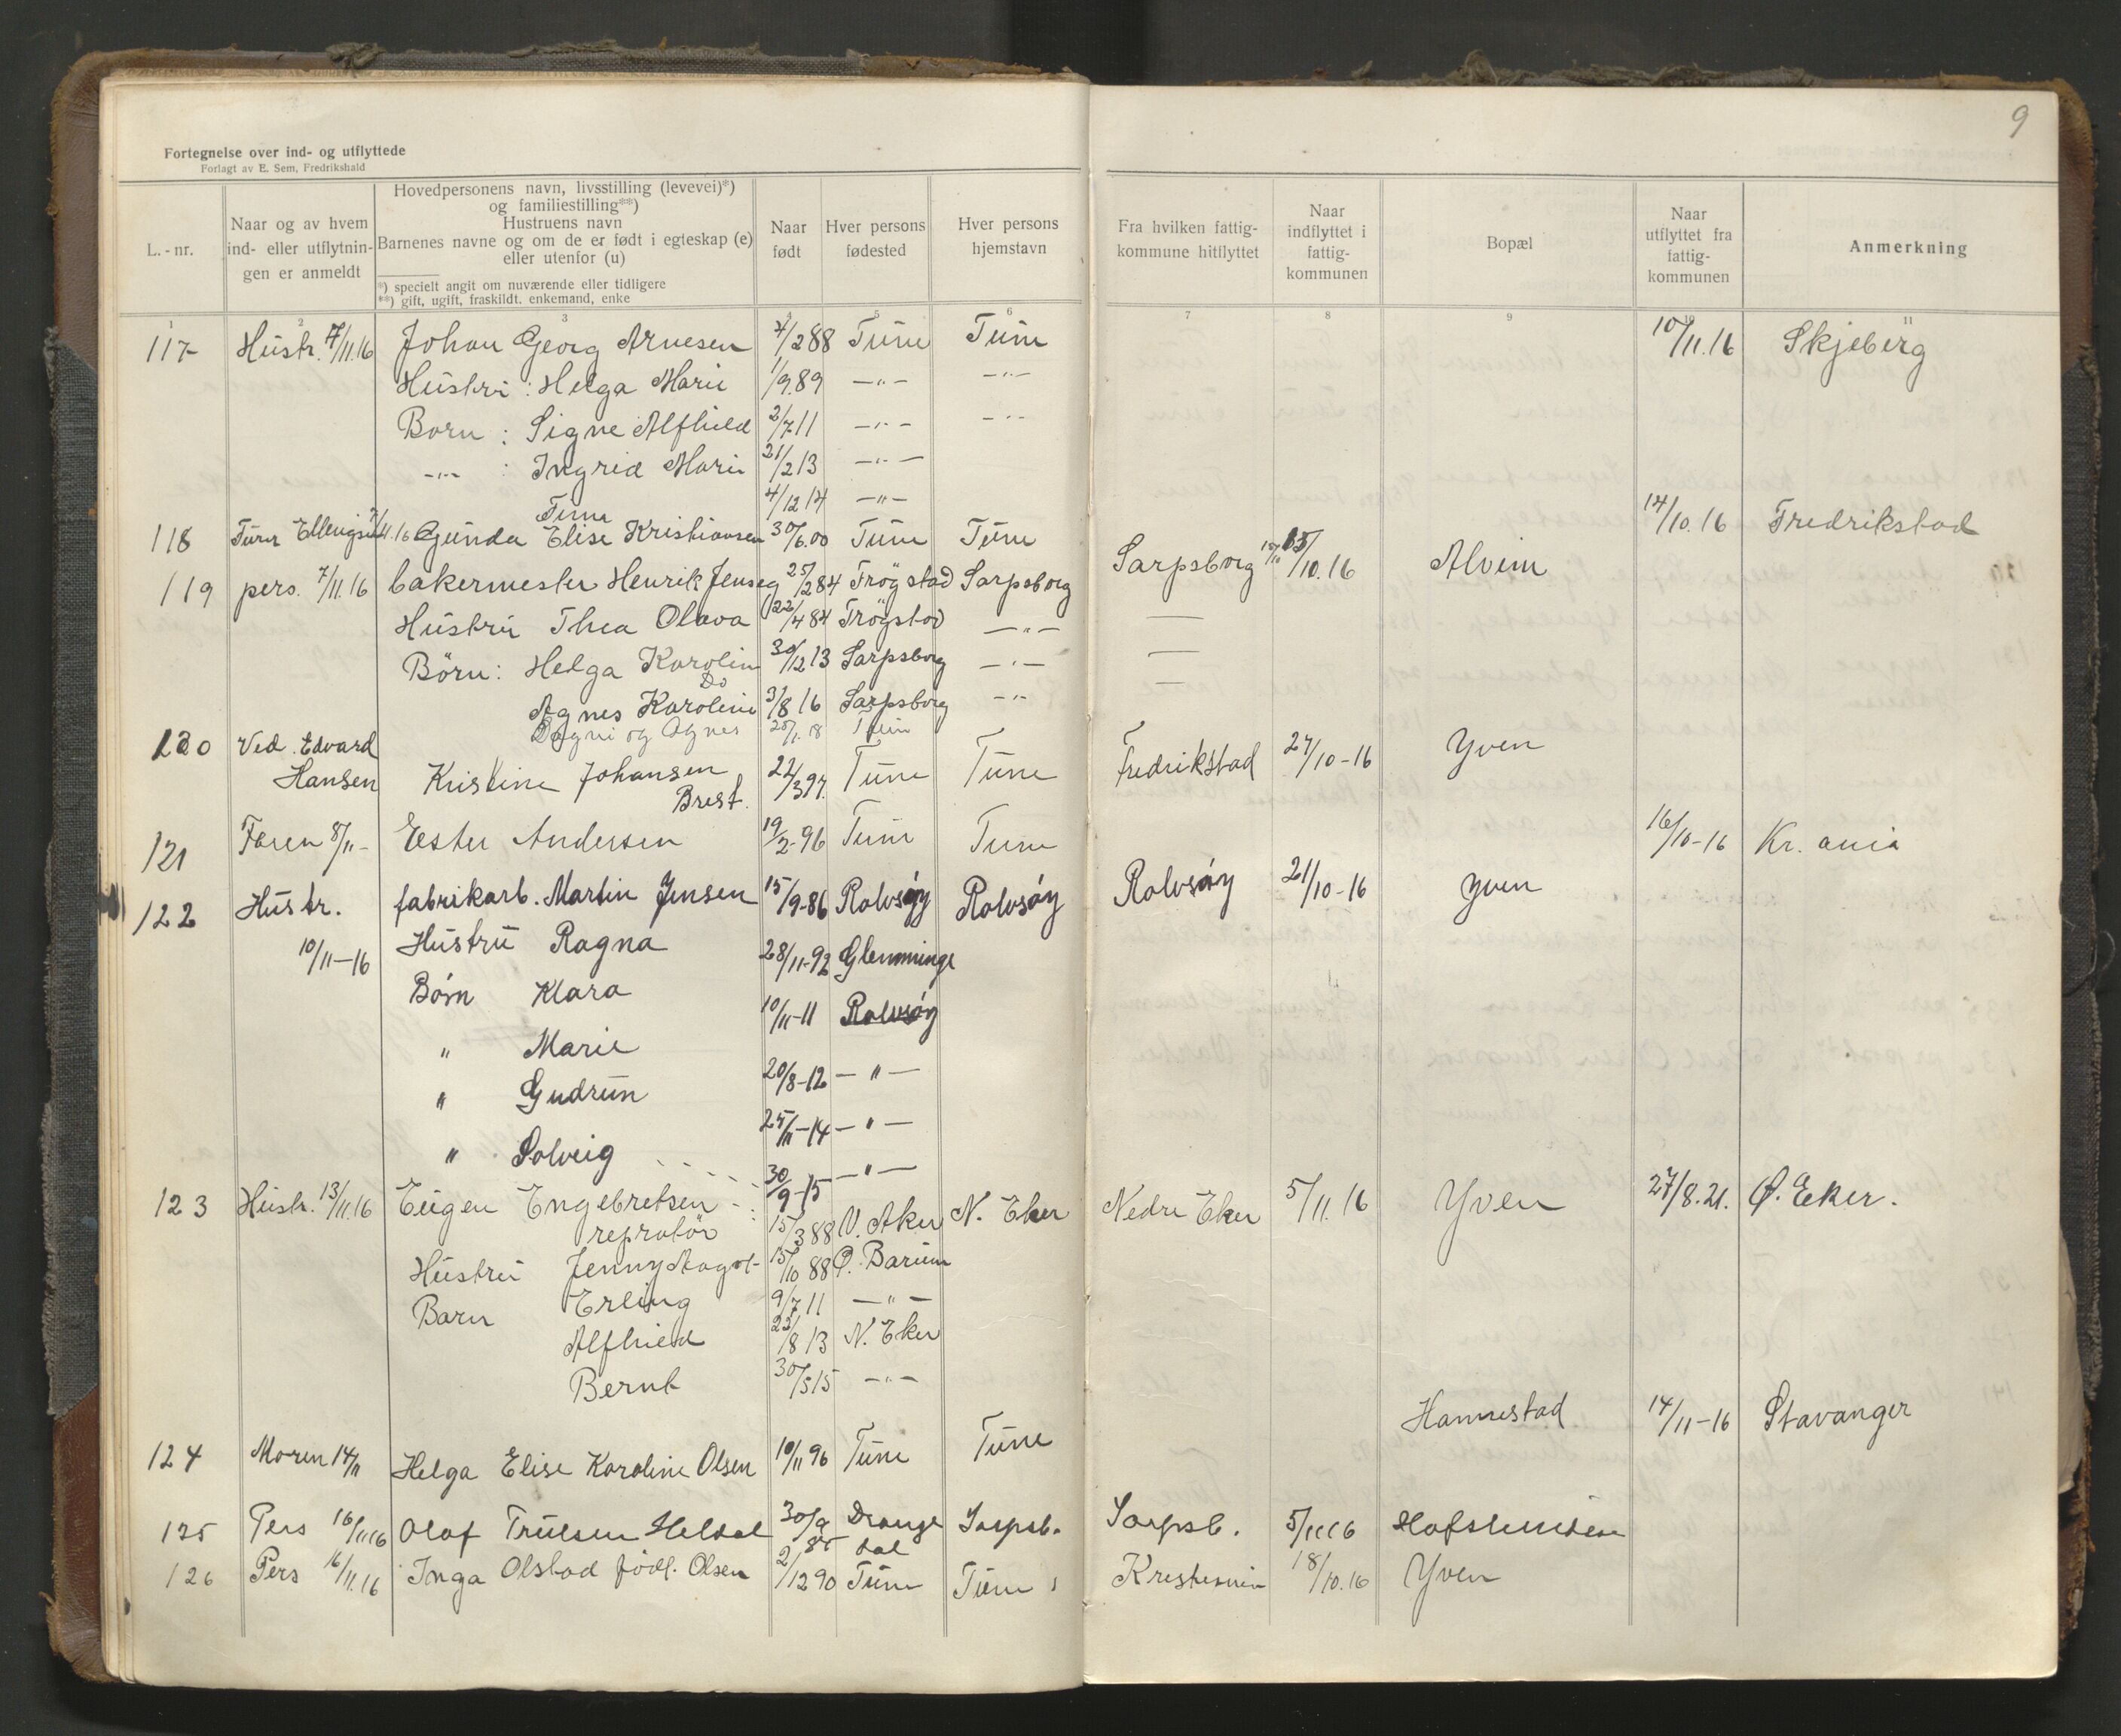 9
Fortegnelse over ind- og utflyttede
Forlagt av E. Sem, Fredrikshald
L.-nr.
Naar og av hvem ind- eller utflytnin- gen er anmeldt
Hovedpersonens navn, livsstilling (levevei)*)
og familiestilling**)
Hustruens navn
Barnenes navne og om de er født i egteskap (e)
eller utenfor (u)
*) specielt angit om nuværende eller tidligere
**) gift, ugift, fraskildt. enkemand, enke
Naar født
Hver persons fødested
Hver persons hjemstavn
Fra hvilken fattig- kommune hitflyttet
Naar indflyttet i fattig- kommunen
Bopæl
Naar utflyttet fra fattig- kommunen
Anmerkning
1 2 3 4 5 6 7 8 9 10 11
117 Hustr. 7/11.16 Johan Georg Arnesen 4/2 88 Tune Tune 10/11.16 Skjeberg
Hustru : Helga Marie 1/9.89 —"— —"—
Born : Signe Alfhild 2/7 11 —"— —"—
—"— : Ingrid Marie 21/2 13 —"—
4/12 14 —"—
118 Gunda Elise Kristiansen 30/6.00 Tune Tune 14/10.16 Fredrikstad
119 pers. 7/11.16 bakermester Henrik Jenseg 25/2 84 Trögstad Sarpsborg Sarpsborg 15/10.16 Alvim
Hustru Thea Olava 22/4 84 Trögstad —"— —
Börn: Helga Karolin 30/12 13 Sarpsborg —"— —
Agnes Karoline 3/8 16 Sarpsborg —"— —
Dagni og Agnes 1.18 Tune
120 Ved. Edvard
Hansen Kristine Johansen 22/3 97. Tune Tune Fredrikstad 27/10-16 Yven
121 Faren 8/11- Ester Andersen 19/2-96 Tune Tune 16/10-16 Kr. ania
122 Hustr. fabrikarb. Martin Jensen 15/9-86 Rolvsøy Rolvsøy Rolvsøy 21/10-16 Yven
10/11-16 Hustru Ragna 28/11-92 Glemminge
Børn Klara 10/11-11 Rolvsøy
" Marie 20/8-12 —"—
" Gudrun 25/11-14 —"—
" Solveig 30/9-15 —"—
123 Hustr. 13/11.16 Eugen Engebretsen 15/3 88 V. Aker N. Eker Nedre Eker 5/11.16 Yven 27/8.21. Ø. Eker.
repratör
Hustru Jenny Aagot 15/10 88 Ø. Barum
Barn Erling 9/7 11 —"—
Alfhild 23/8 13 N. Eker
Bernt 30/5 15 —"—
124 Moren 14/11 Helga Elise Karoline Olsen 10/11 96 Tune Tune Hannestad 14/11-16 Stavanger
125 Pers 16/11 16 Olaf Truelsen Heldal 30/9 85 Drange dal Sarpsb. Sarpsb. 5/11 16
126 Pers 16/11.16 Inga Olstad födt. Olsen 2/12 90 Tune Tune 18/10.16 Yven